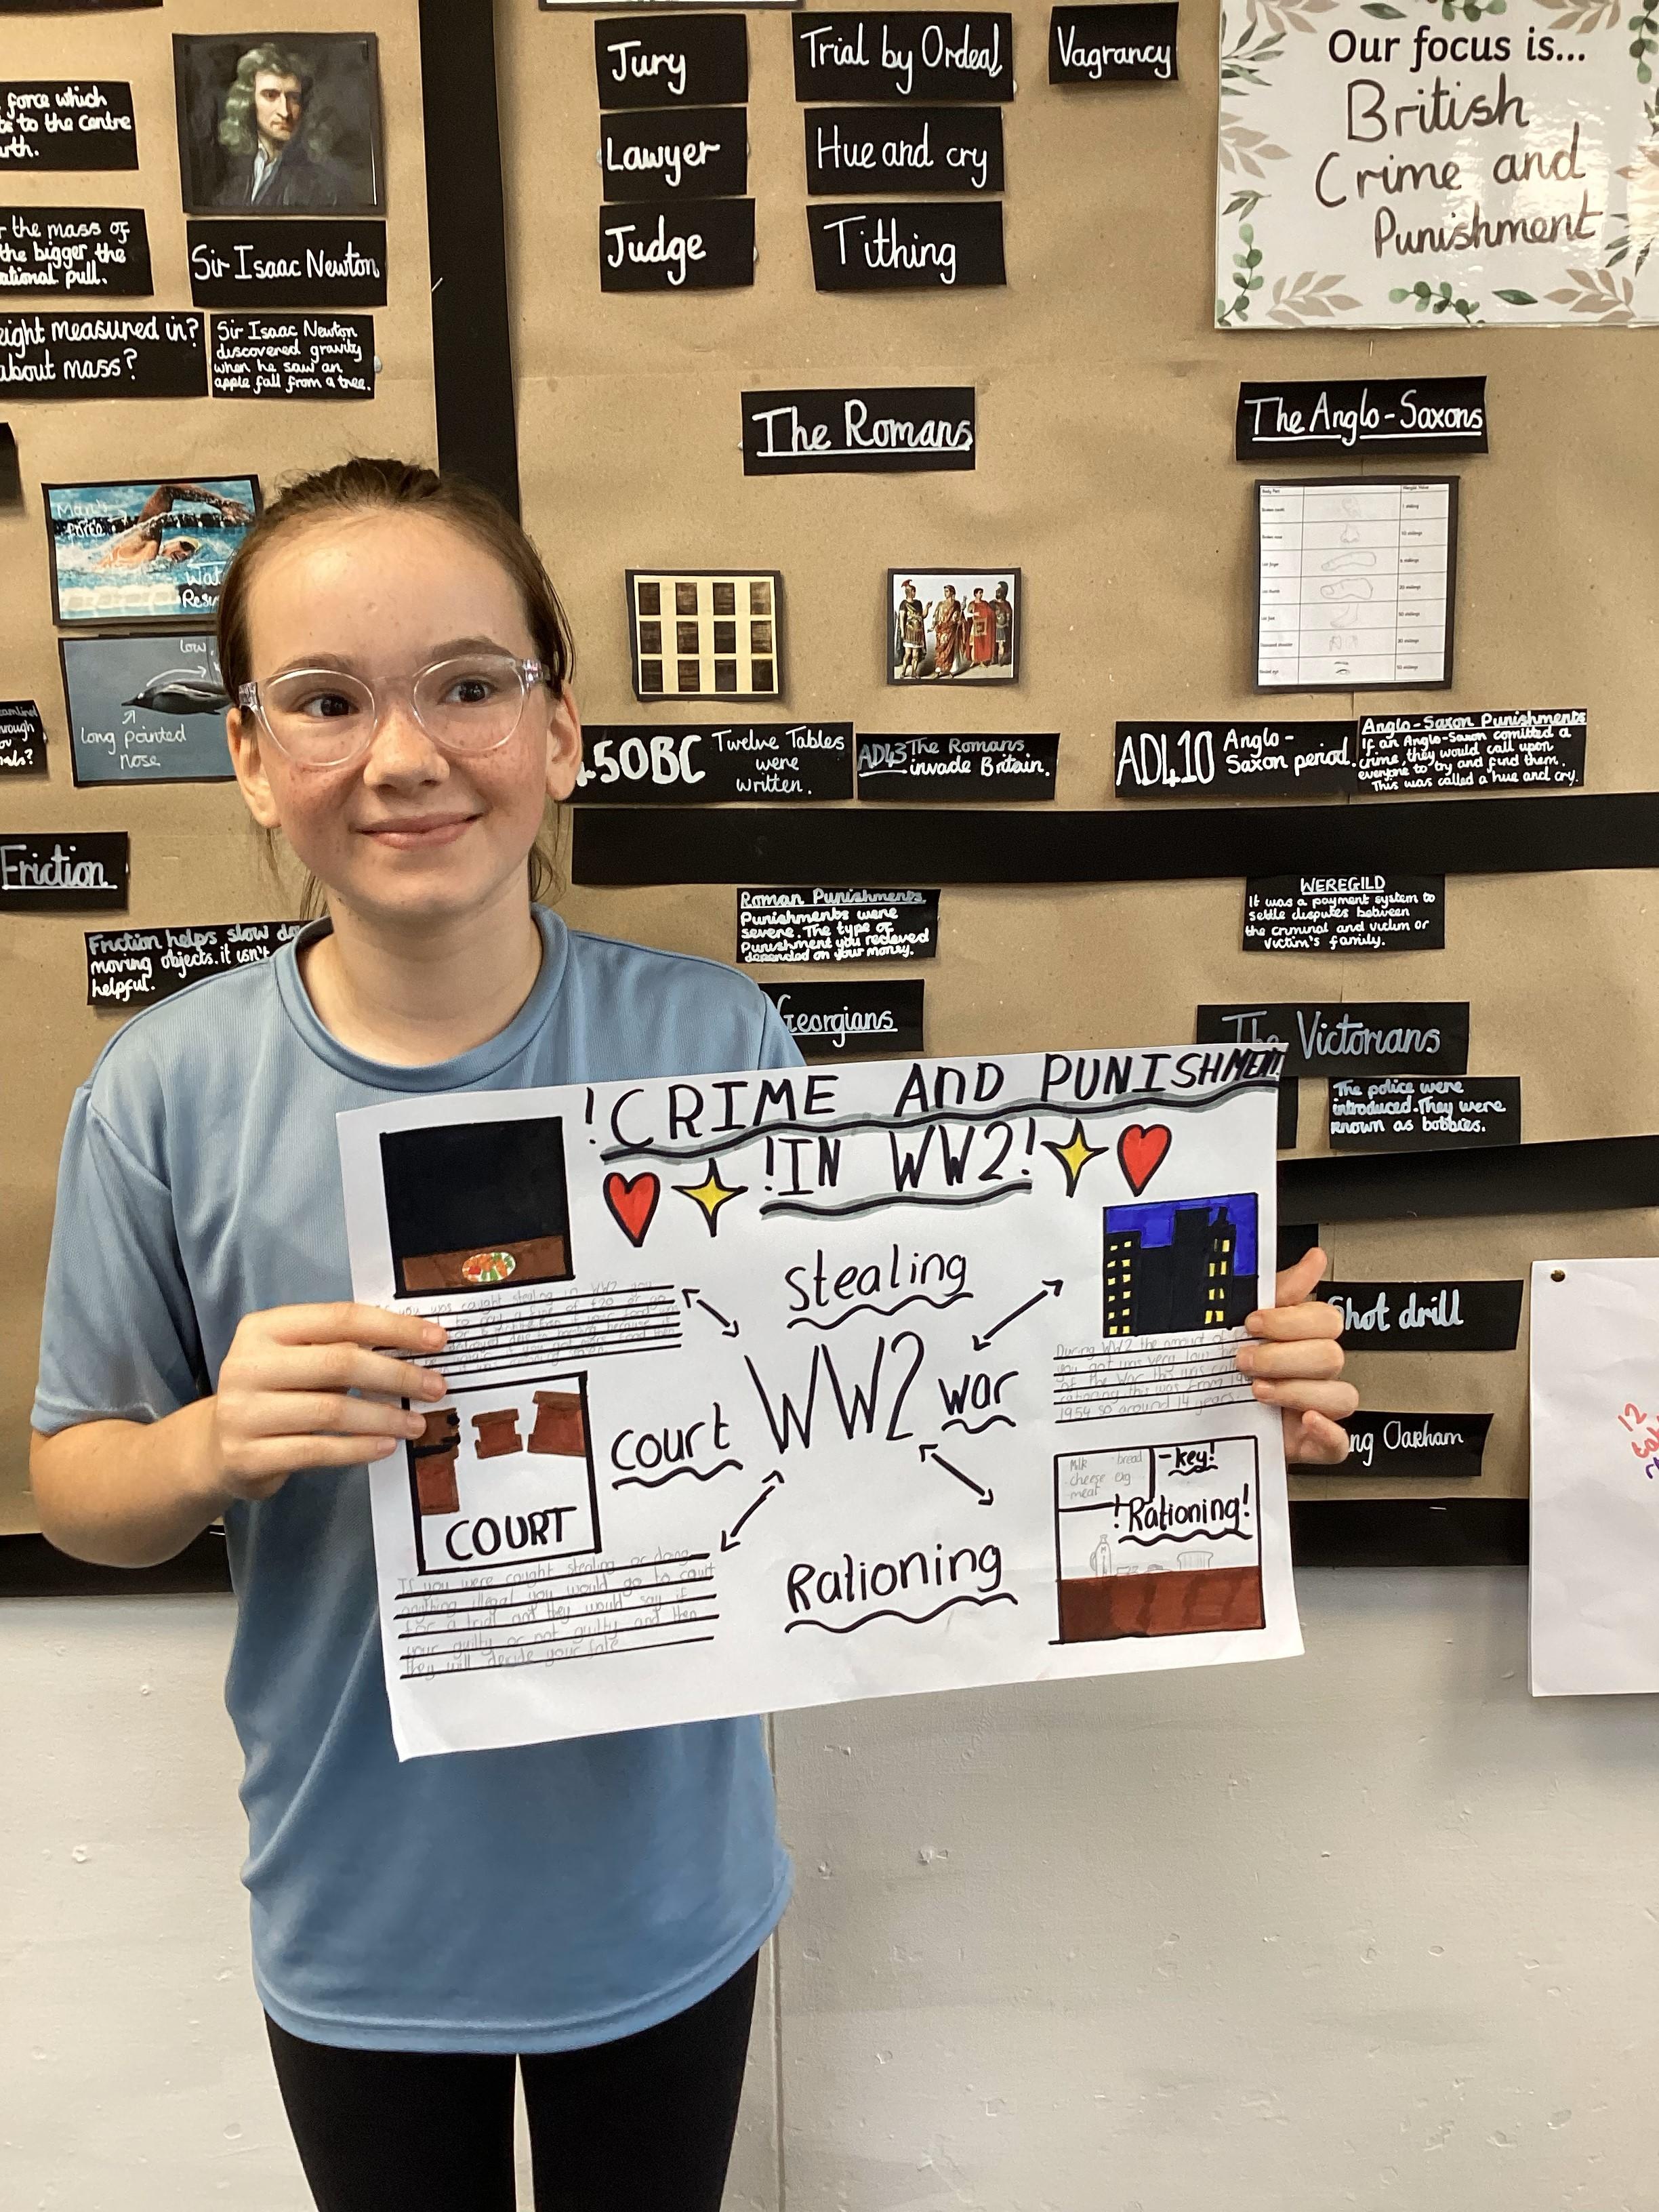 force which
to the centre
the mass of
the bigger the
pull.
measured in?
about mass?
Sir Isaac Newton
Sir Isaac Newton
discovered gravity
when he saw an
apple fall from a tree.
long pointed
nose
Friction
Friction helps slow
moving objects. it isn't
helpful.
Jury
Lawyer
Judge
Trial by Ordeal
Hue and cry
Tithing
Vagrancy
Our focus is...
British
Crime and
Punishment
The Romans
The Anglo-Saxons
450BC Twelve Tables
were
written.
AD43 The Romans
invade Britain.
AD410 Anglo-
Saxon period.
Anglo-Saxon Punishments
If an Anglo-Saxon comitted a
crime, they would call upon
everyone to try and find them.
This was called a hue and cry.
Roman Punishments
Punishments were
severe. The type of
Punishment you recieved
depended on your money.
WEREGILD
It was a payment system to
settle disputes between
the criminal and victim or
victim's family.
Georgians
The Victorians
The police were
introduced. They were
known as bobbies.
Shot drill
Oakham
!CRIME AND PUNISHMENT
!IN WW2!
Stealing
WW2
war
court
Rationing
you was caught stealing in WW2
COURT
If you were caught stealing or doing
anything illegal you would go to court
for a trial and they would say if
your guilty or not guilty and then
they will decide your fate
During WW2 the amount of
you got was very low
of the war this was
rationing this was from
1954 so around 14 years
Milk bread
cheese egg
meat
-key!
!Rationing!
12